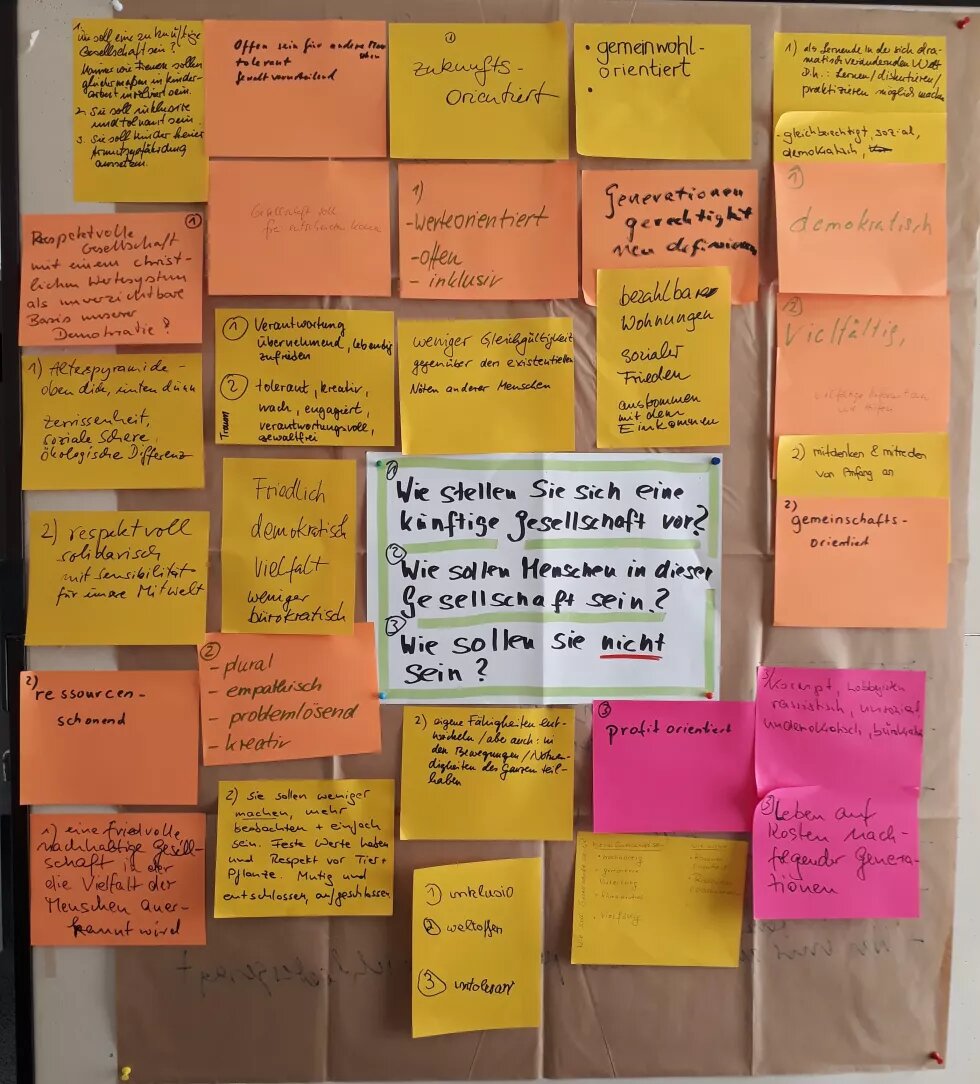 1. Wie soll eine zukünftige
Gesellschaft sein?
Männer wie Frauen sollen
gleichermaßen in Kinder-
arbeit involviert sein.
2. Sie soll inklusiv
und tolerant sein.
3. Sie soll Kinder keiner
Armutsgefährdung
aussetzen.
Offen sein für andere Menschen
tolerant
①
zukunfts-
orientiert
• gemeinwohl-
orientiert
•
1) als lernende in der sich dra-
matisch verändernden Welt
D.h.: Lernen/diskutieren/
praktizieren möglich machen
- gleichberechtigt, sozial,
demokratisch,
Respektvolle ①
Gesellschaft
mit einem christ-
lichen Wertesystem
als unverzichtbare
Basis unserer
Demokratie?
Gesellschaft soll
frei entscheiden können
1)
- werteorientiert
- offen
- inklusiv
Generationen
gerechtigkit
neu definieren
①
demokratisch
① Verantwortung
übernehmend, lebendig
zufrieden
② tolerant, kreativ,
wach, engagiert,
verantwortungsvoll,
gewaltfrei
Traum
weniger Gleichgültigkeit
gegenüber den existentiellen
Nöten anderer Menschen
bezahlbare
Wohnungen
sozialer
Frieden
auskommen
mit dem
Einkommen
②
Vielfältig,
1) Alterspyramide -
oben dick, unten dünn
Zerrissenheit,
soziale Schere,
ökologische Differenz
2) mitdenken & mitreden
von Anfang an
Friedlich
demokratisch
Vielfalt
weniger
bürokratisch
① Wie stellen Sie sich eine
künftige Gesellschaft vor?
② Wie sollen Menschen in dieser
Gesellschaft sein?
③ Wie sollen sie nicht
sein?
2)
gemeinschafts-
orientiert
2) respektvoll
solidarisch
mit Sensibilität
für unsere Mitwelt
2)
ressourcen-
schonend
②
- plural
- empathisch
- problemlösend
- kreativ
2) eigene Fähigkeiten ent-
wickeln / aber auch: in
den Bewegungen / Notwen-
digkeiten des Ganzen teil-
haben
③
profit orientiert
3) Korrupt, Lobbyisten
rassistisch, unsozial,
undemokratisch,
1) eine friedvolle
nachhaltige Gesell-
schaft in der
die Vielfalt der
Menschen aner-
kannt wird
2) Sie sollen weniger
machen, mehr
beobachten + einfach
sein. Feste Werte haben
und Respekt vor Tier +
Pflanze. Mutig und
entschlossen, aufgeschlossen
③ Leben auf
Kosten nach-
folgender Genera-
tionen
① inklusiv
② weltoffen
③ intolerant
• vielfältig